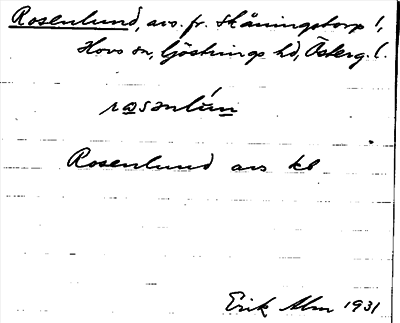 Rosenlund, avs. fr. Skäningstorp 1,
Hovs sn, Göstrings hd, Österg. l.
rɷsənlún
Rosenlund avs kb
Erik Alm 1931